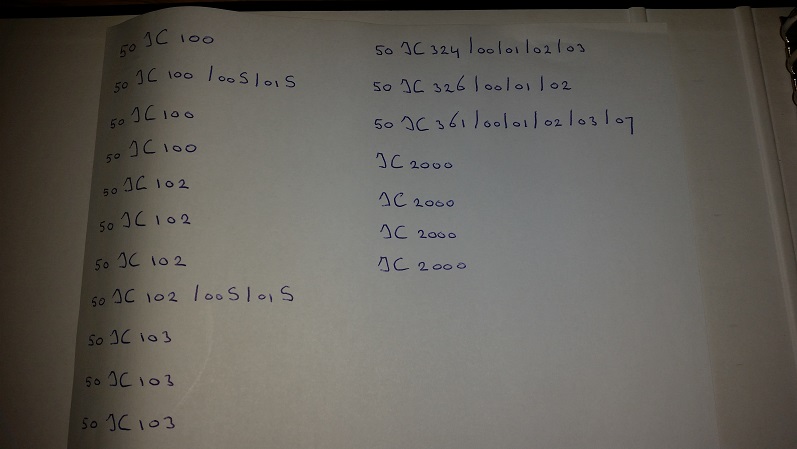 50 JC 100
50 JC 100 /00S/01S
50 JC 100
50 JC 100
50 JC 102
50 JC 102
50 JC 102
50 JC 102 /00S/01S
50 JC 103
50 JC 103
50 JC 103
50 JC 324/00/01/02/03
50 JC 326/00/01/02
50 JC 361/00/01/02/03/07
JC 2000
JC 2000
JC 2000
JC 2000